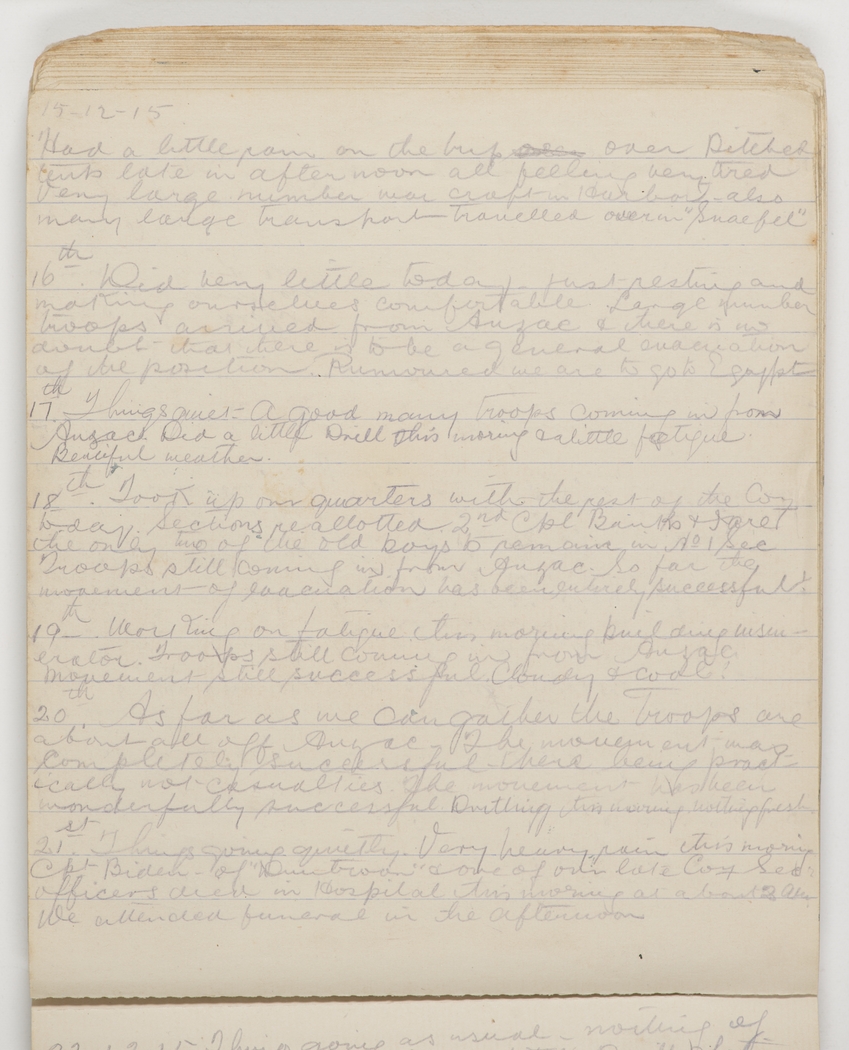 15-12-15
Had a little rain on the trip over over Pitched
tents late in afternoon all feeling very tired
Very large number war craft in Harbor - also
many large transport travelled over in "Snaefel"
16th. Did very little today - just resting and
making ourselves comfortable. Large number
troops arrived from Anzac & there is no
doubt that there is to be a general evacuation
of the position. Rumoured we are to go to Egyppt
17th Things quiet - A good many troops coming in from
Anzac. Did a little Drill this moring & a little fatigue.
Beutiful weather.
18th. Took up our quarters with the rest of the Coy
today. Sections reallotted 2nd Cpl Banks & I are
the only two of the old boys to remain in No 1 Sec
Troops still coming in from Anzac. So far the
movement of evacuation has been entirely successful.
19th. Working on fatigue this moring building insin-
erator. Troops still coming in from Anzac
Movement still successful Cloudy & cool.
20th. As far as we can gather the Troops are
about all off Anzac. The movement was
completely successful there being pract-
ically not casualties. The movement has been
wonderfully successful. Drilling this moring, nothing fresh.
21st. Things going quietly. Very heavy rain this moring
Cpt Biden - of "Duntroon" & one of our late Coy Sec
officers died in Hospital this moring at about 3 am.
We attended funeral in the afternoon
22-12-15 Things going as usual - nothing of